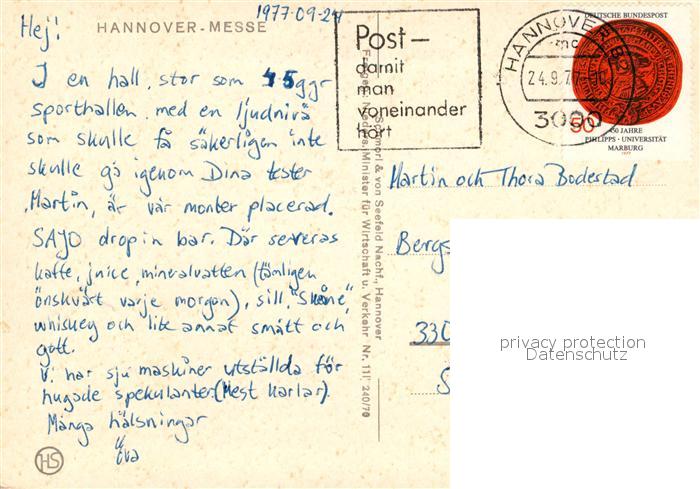 1977-09-24
Hej!
HANNOVER-MESSE
I en hall, stor som 45 ggr
sporthallen, med en ljudnivå
som skulle få säkerligen inte
skulle gå igenom Dina tester
Martin, är vår monter placerad.
SAJO drop in bar. Där serveras
kaffe, juice, mineralvatten (tämligen
önskvärt varje morgon), sill, "Skåne",
whiskey och lite annat smått och
gott.
Vi har sju maskiner utställda för
hugade spekulanter. (Mest karlar).
Många hälsningar
Eva
HS
Post-
damit
man
voneinander
hört
HANNOVER
24.9.77
3000
DEUTSCHE BUNDESPOST
50
450 JAHRE
PHILIPPS-UNIVERSITÄT
MARBURG
1977
Schmorl & von Seefeld Nachf., Hannover
Minister für Wirtschaft u. Verkehr Nr. 111, 240/70
Martin och Thora Bodestad
Bergs
330
S
privacy protection
Datenschutz